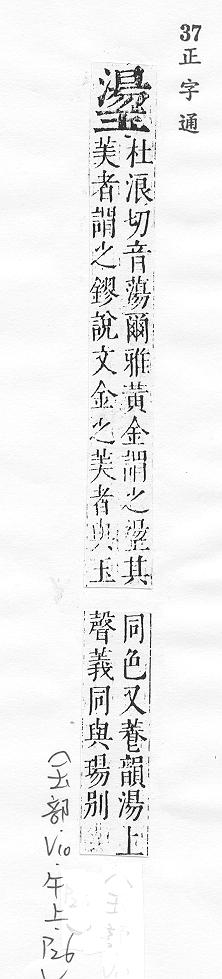 37
正字通
璗
杜浪切音蕩爾雅黃金謂之璗其
美者謂之鏐說文金之美者與玉
同色又養韻湯上
聲義同與瑒別
(玉部
V10.午上.P26